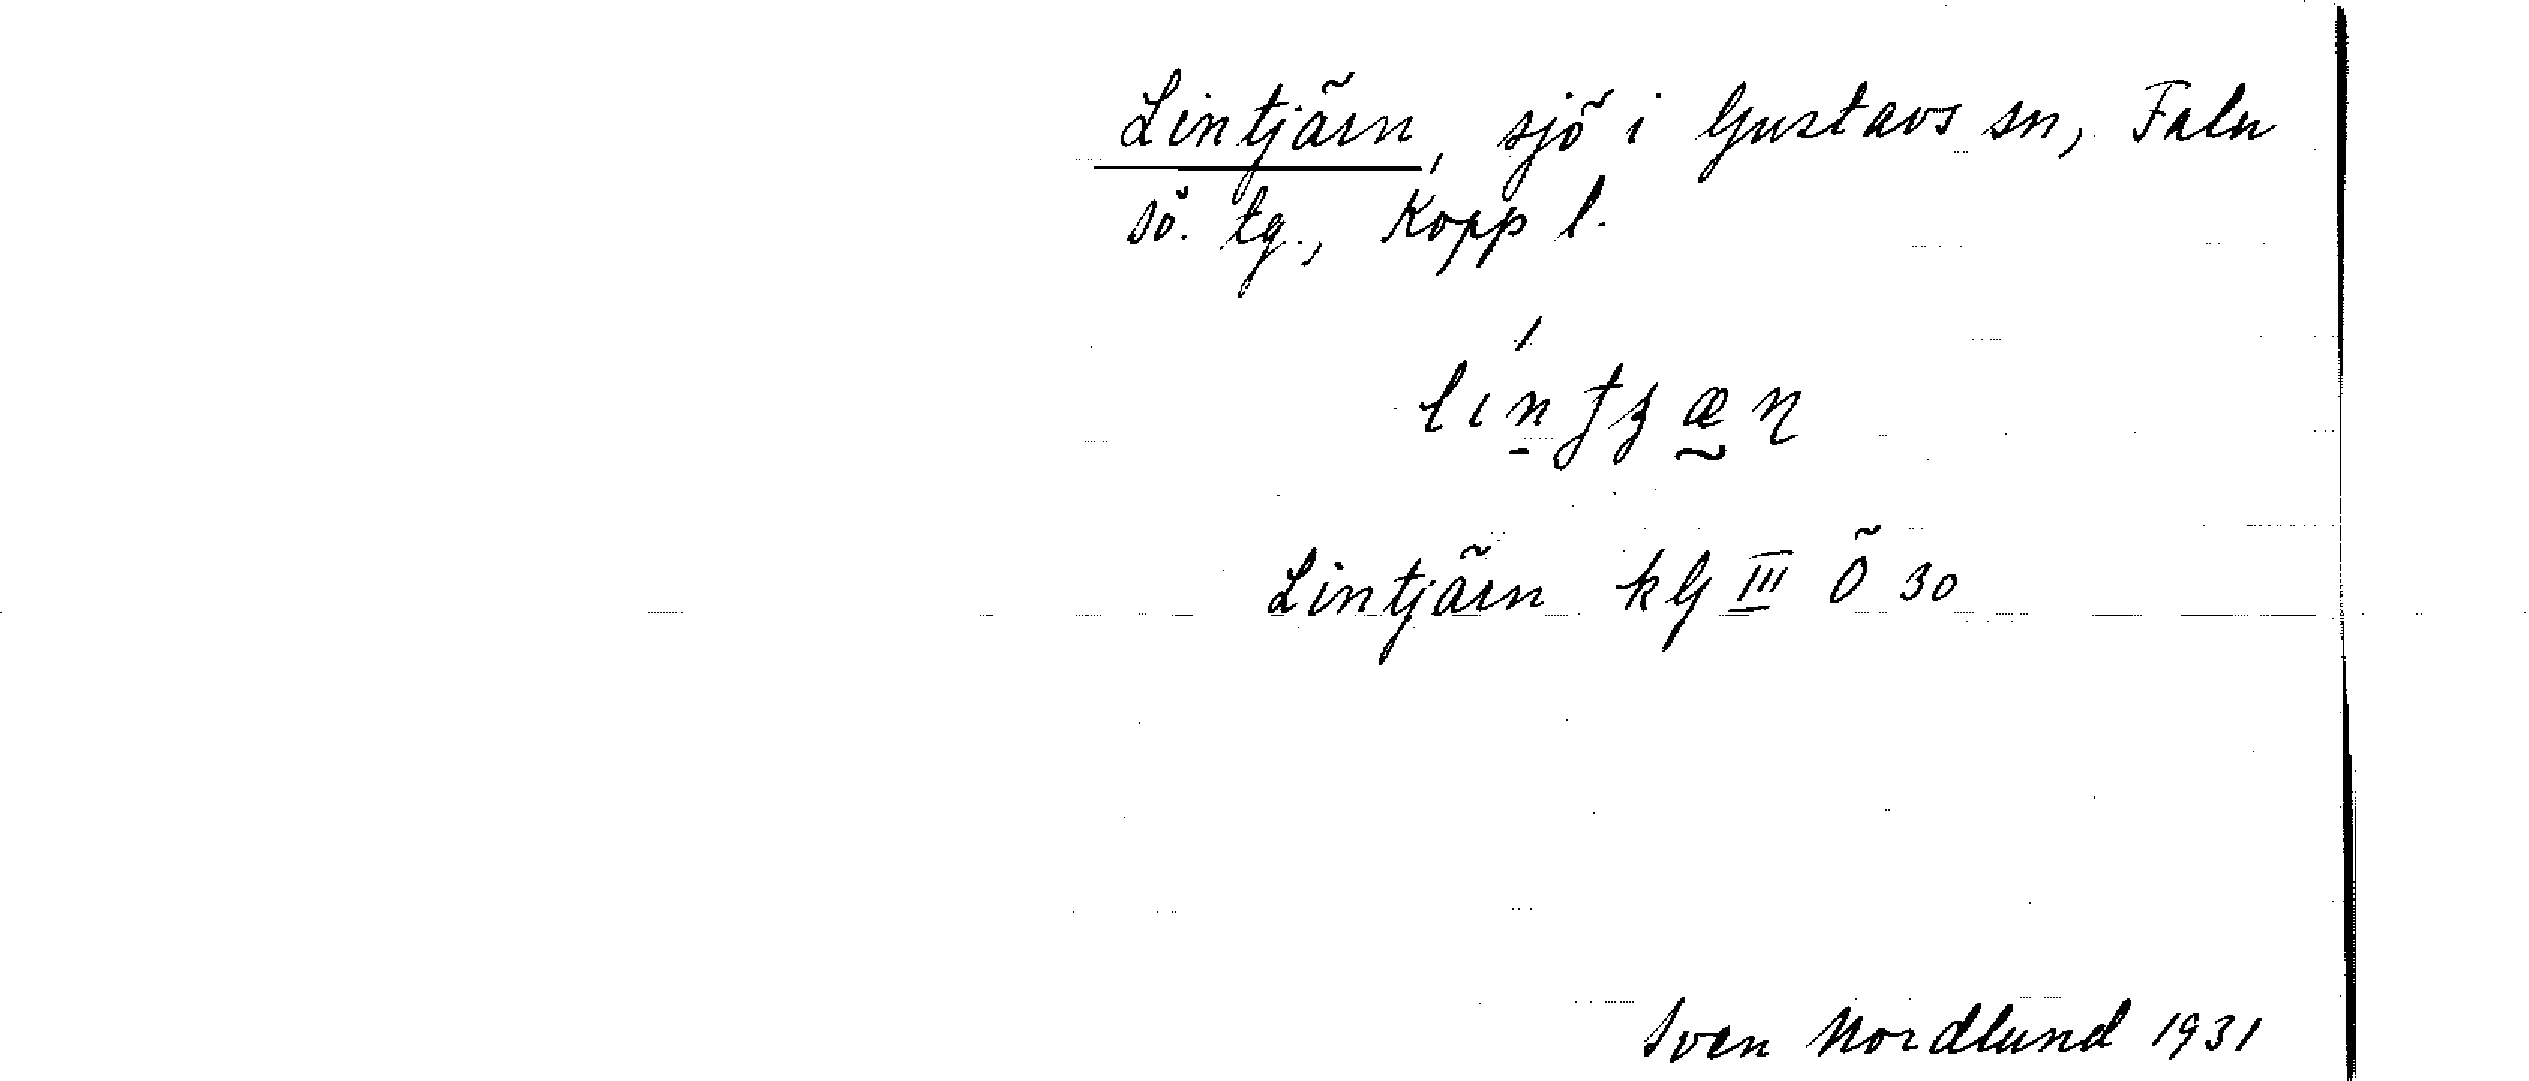 Lintjärn, sjö i Gustavs sn, Falu
sö. tg., Kopp l.
Lintjärn kG III Ö 30
Sven Nordlund 1931